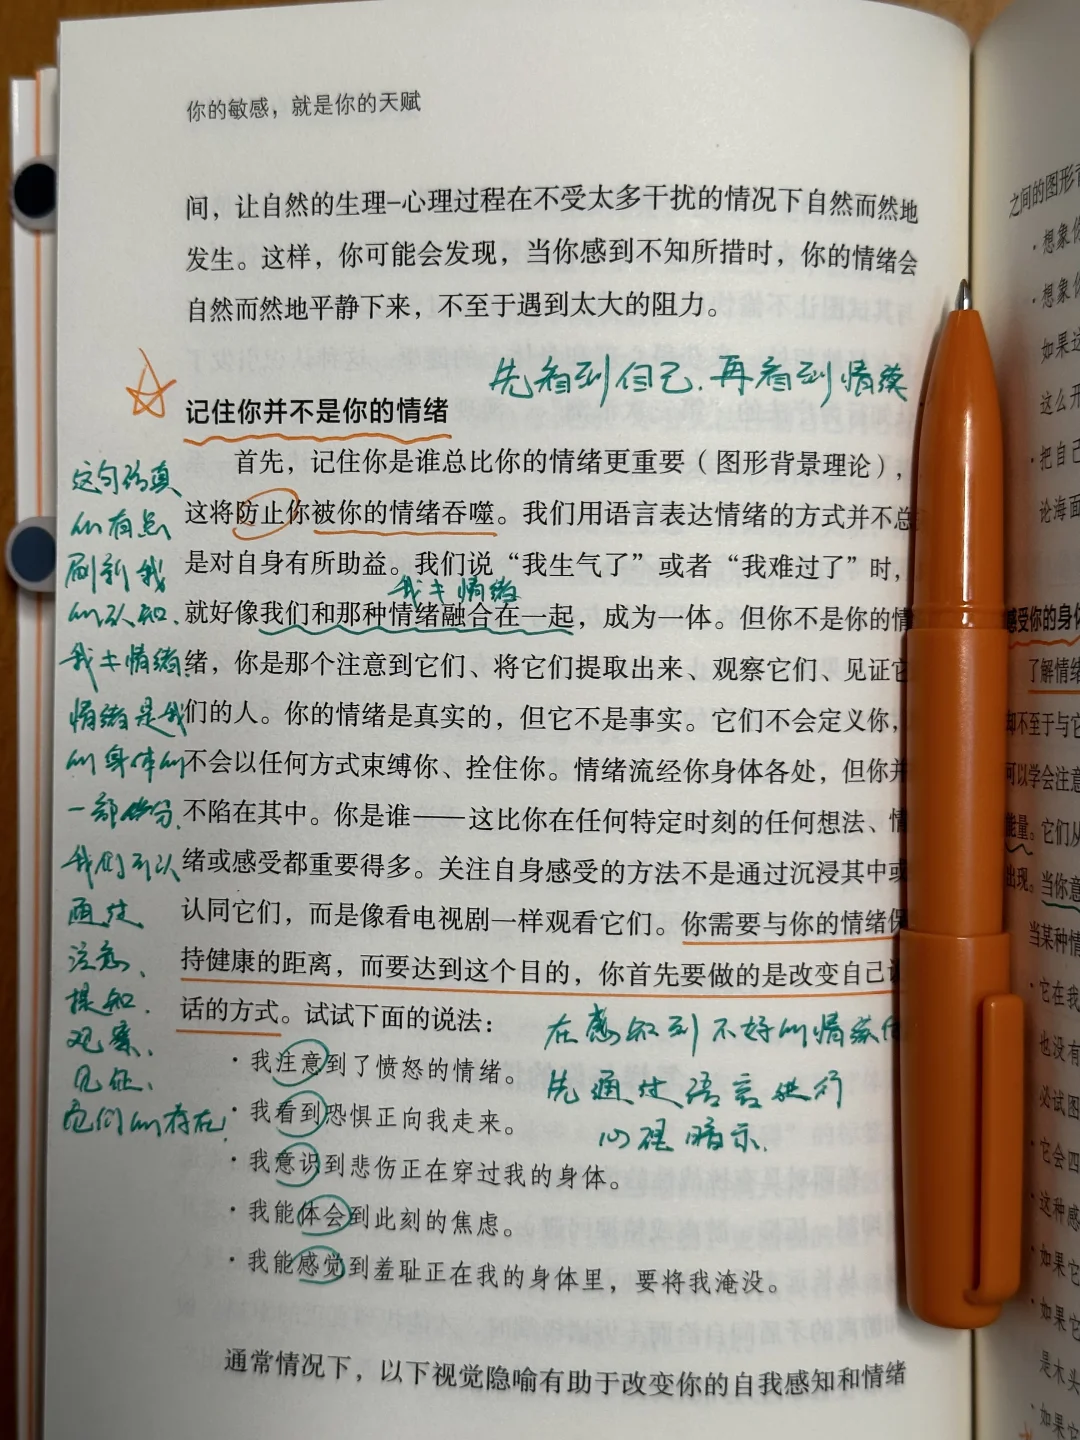 你的敏感，就是你的天赋
间，让自然的生理-心理过程在不受太多干扰的情况下自然而然地
发生。这样，你可能会发现，当你感到不知所措时，你的情绪会
自然而然地平静下来，不至于遇到太大的阻力。
先看到自己、再看到情绪
记住你并不是你的情绪
首先，记住你是谁总比你的情绪更重要（图形背景理论），
这将防止你被你的情绪吞噬。我们用语言表达情绪的方式并不总
是对自身有所助益。我们说“我生气了”或者“我难过了”时，
我≠情绪
就好像我们和那种情绪融合在一起，成为一体。但你不是你的情
绪，你是那个注意到它们、将它们提取出来、观察它们、见证它
们的人。你的情绪是真实的，但它不是事实。它们不会定义你，
不会以任何方式束缚你、拴住你。情绪流经你身体各处，但你并
不陷在其中。你是谁——这比你在任何特定时刻的任何想法、情
绪或感受都重要得多。关注自身感受的方法不是通过沉浸其中或
认同它们，而是像看电视剧一样观看它们。你需要与你的情绪保
持健康的距离，而要达到这个目的，你首先要做的是改变自己
话的方式。试试下面的说法：
·我注意到了愤怒的情绪。
·我看到恐惧正向我走来。
·我意识到悲伤正在穿过我的身体。
·我能体会到此刻的焦虑。
·我能感觉到羞耻正在我的身体里，要将我淹没。
通常情况下，以下视觉隐喻有助于改变你的自我感知和情绪
这句话真
的有点
刷新我
的认知、
我≠情绪
情绪是我
的身体的
一部分、
我们可以
通过
注意、
观察、
见证、
它们的存在
在感知到不好的情绪
先通过语言进行
心理暗示、
之间的图形
·想象你
·想象你
如果这
这么开
·把自己
论海面
感受你的身体
了解情绪
却不至于与它
可以学会注意
能量。它们从
出现。当你意
当某种情
·它在我
也没有
必试图
·它会四
·这种感
·如果它
·如果它
是木头
·如果它